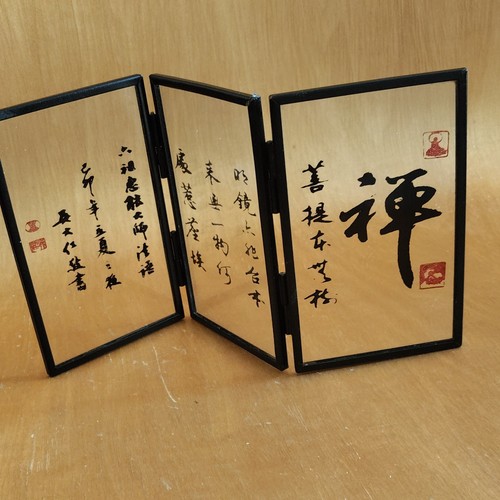 禪
菩提本無樹
明鏡亦非台本
來無一物何
處惹塵埃
六祖惠能大師法語
己卯年立夏
大仁敬書